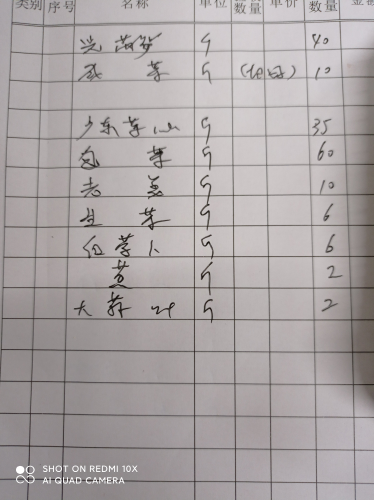 类别 序号 名称 单位 数量 单价 数量 金
斤 40
菜 斤 10
广东菜心 斤 35
包菜 斤 60
老姜 斤 10
生菜 斤 6
红萝卜 斤 6
斤 2
大蒜叶 斤 2
SHOT ON REDMI 10X
AI QUAD CAMERA